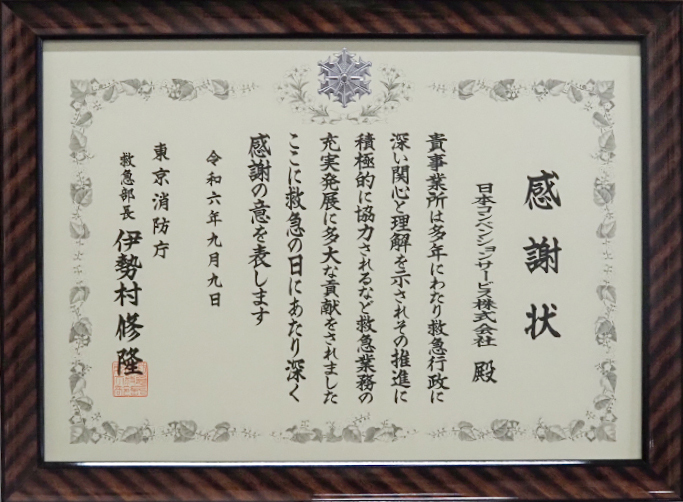 感謝状
日本コンベンションサービス株式会社 殿
貴事業所は多年にわたり救急行政に
深い関心と理解を示されその推進に
積極的に協力されるなど救急業務の
充実発展に多大な貢献をされました
ここに救急の日にあたり深く
感謝の意を表します
令和六年九月九日
東京消防庁
救急部長 伊勢村修隆